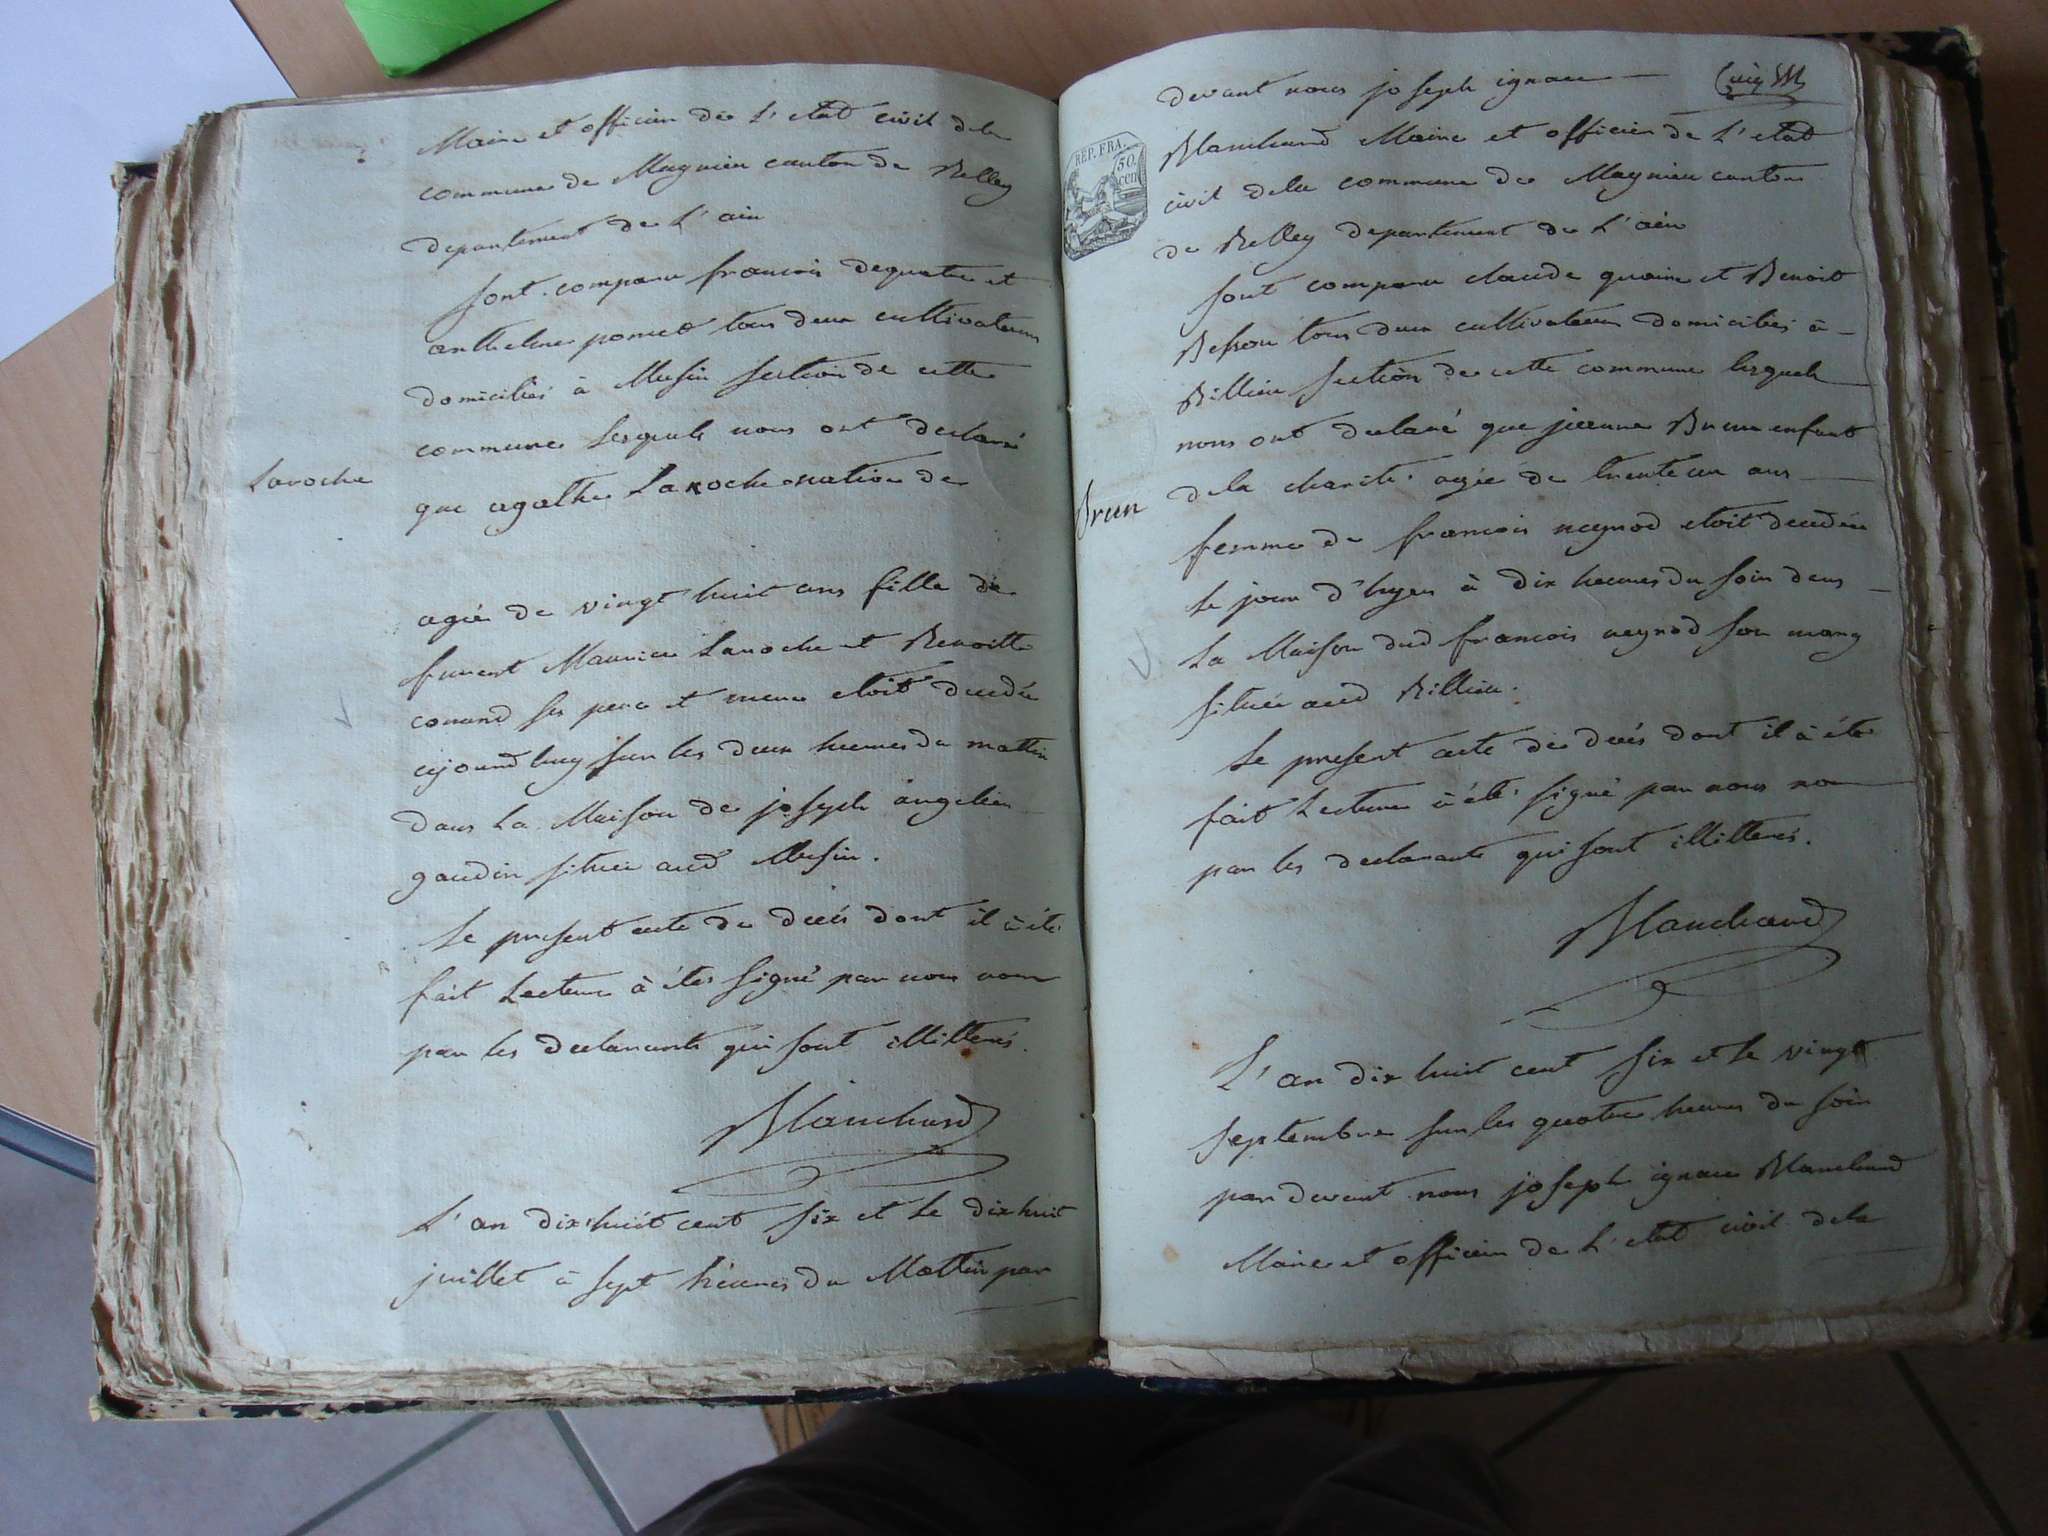 Maire et officier de L'etat civil dela
commune de Magnieu canton de Belley
departement de L'ain
sont comparu francois dequatre et
anthelme pomet tous deux cultivateurs
domiciliés à Musin section de cette
commune Lesquels nous ont declaré
Laroche
que agathe Laroche native de
agée de vingt huit ans fille de
furent Maurice Laroche et Benoitte
conand ses pere et mere etoit decedée
ajourd huy sur les deux heures du mattin
dans La Maison de joseph angelin
gaudin située aud Musin.
Le present acte de decés dont il à été
fait Lecture à étés signé par nous non
par les declarants qui sont illitterés.
Blanchard
L'an dix huit cent six et Le dix huit
juillet à sept heures du Mattin par
devant nous joseph ignace
REP. FRA.
50 cen
Blanchard Maire et officier de L'etat
civil dela commune de Magnieu canton
de Belley departement de L'ain
sont comparu claude quaine et Benoit
Besson tous deux cultivateurs domiciliés à
Billieu section de cette commune lesquels
nous ont declaré que jeanne Brun enfant
dela charité agée de trente un ans
Brun
femme de francois neynod etoit decedée
Le jour d'hyer à dix heures du soir dans
La Maison dud francois neynod son mary
située aud Billieu.
Le present acte de decés dont il à été
fait Lecture à été signé par nous non
par les declarants qui sont illitterés.
Blanchard
L'an dix huit cent six et le vingt
septembre sur les quatre heures du soir
par devant nous joseph ignace Blanchard
Maire et officier de L'etat civil dela